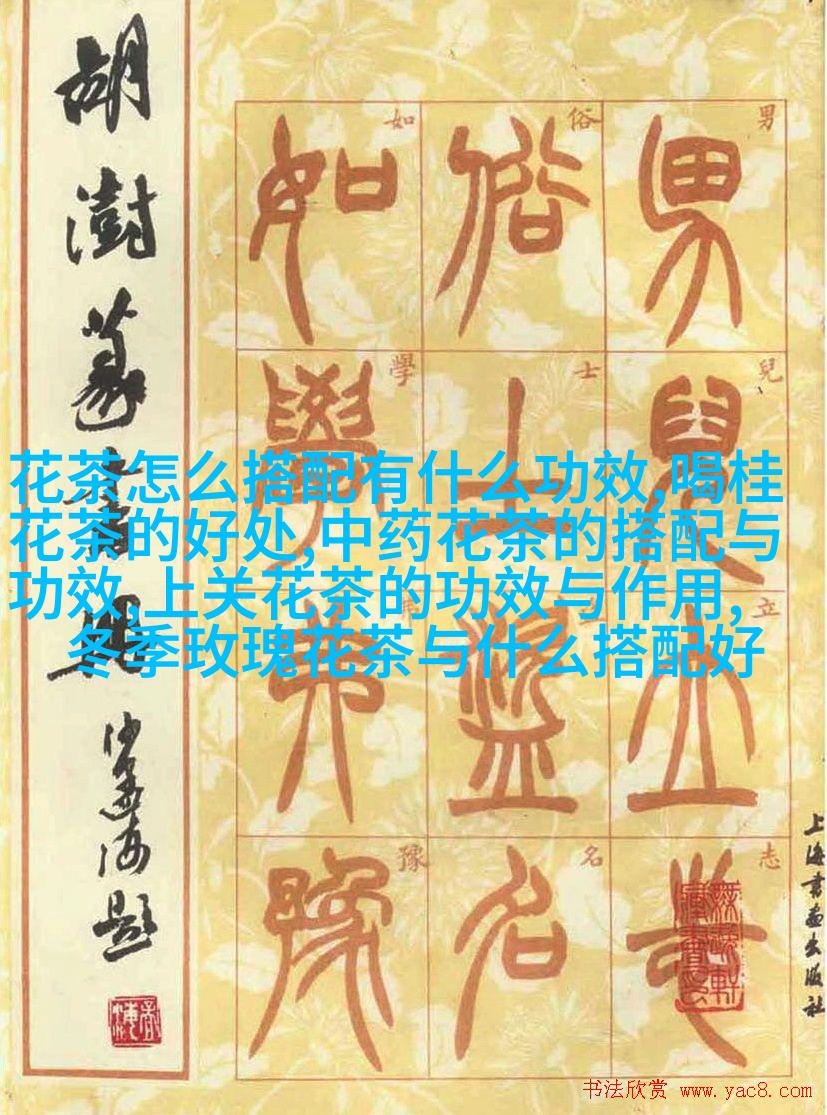 胡澍篆书册
沙孟海题
男
俗
如
男俗如
兒
士
學
兒士學
立
立盜弟
志
名
豫
志名豫
上海书画出版社
花茶怎么搭配有什么功效,喝桂
花茶的好处,中药花茶的搭配与
功效,上关花茶的功效与作用,
冬季玫瑰花茶与什么搭配好
书法欣赏 www.yac8.com